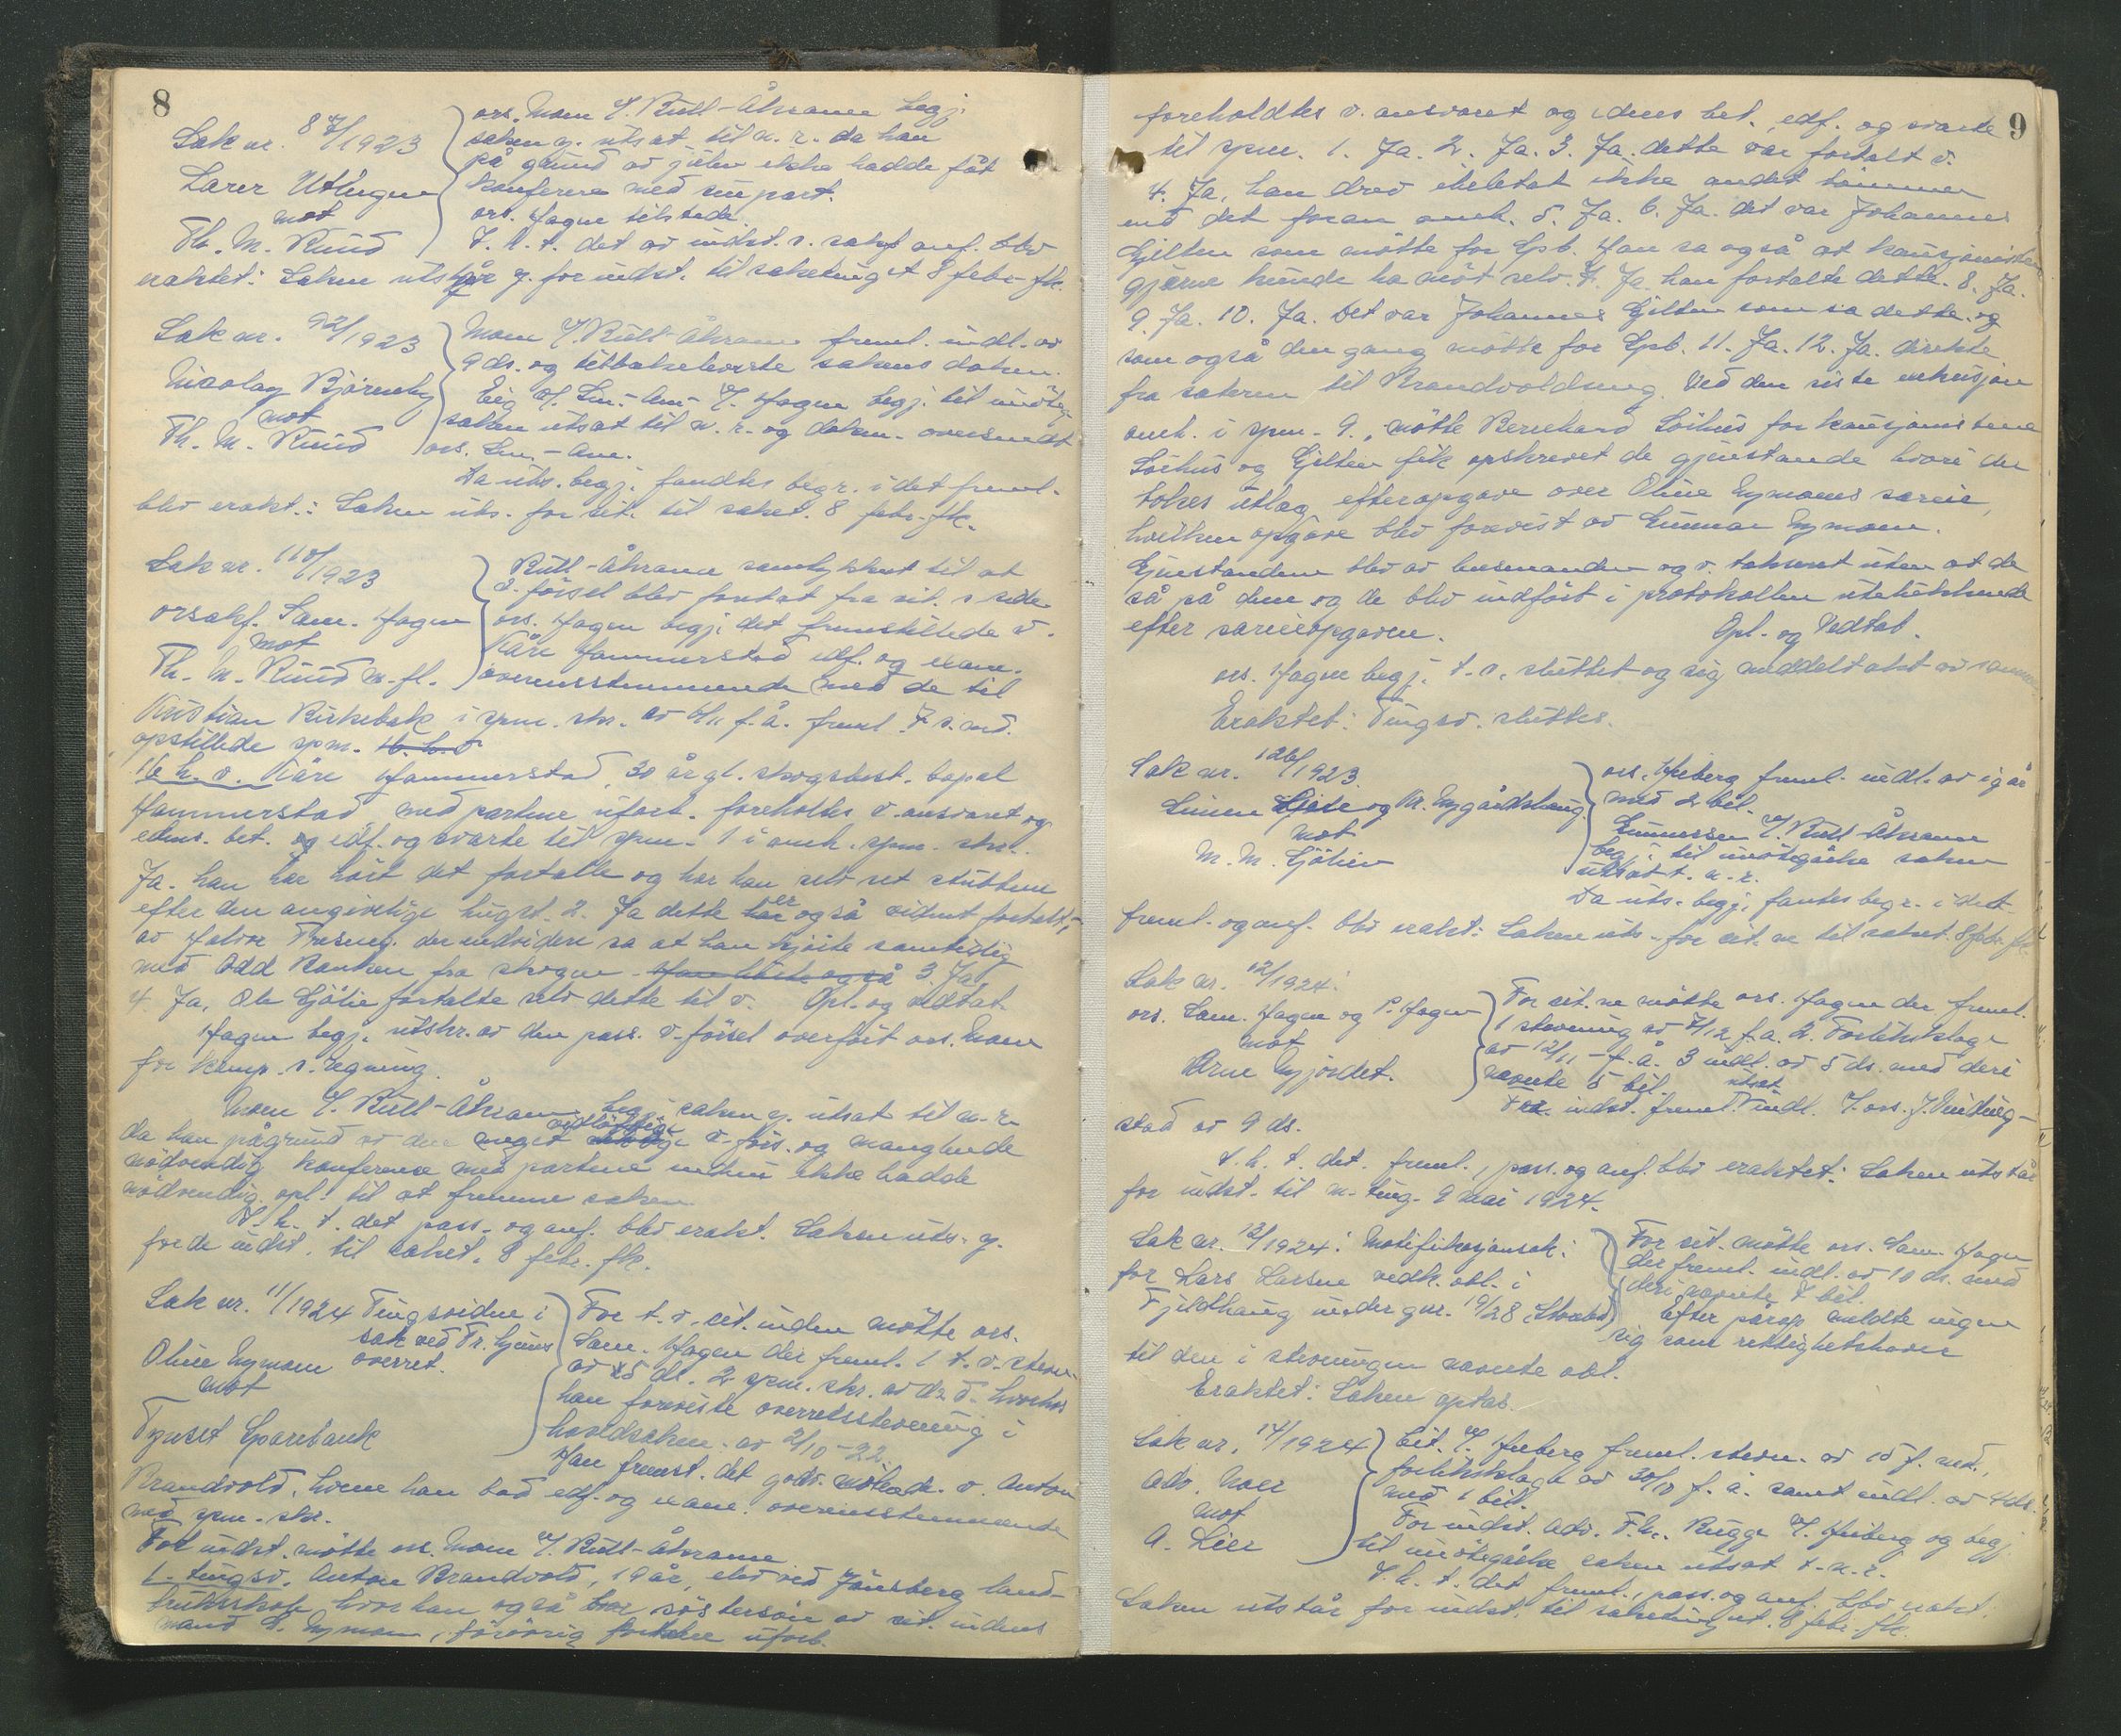 8
Sak nr. 87/1923
Larer Utengen
mot
Th. M. Ruud
ors. Moen v. Rull-Åhrann begj.
saken y. utsat til n. r. da han
på grund av julen ikke hadde fåt
konferere med sin part.
ors. Hagen tilstede.
V. h. t. det av indst. s. sakf. anf. blev
eraktet: Saken utstår y. for indst. til saketinget 8 febr. fk.
Sak nr. 92/1923
Nicolay Björneby
mot
Th. M. Ruud
Moen v. Rull-Åhrann freml. indl. av
9 ds. og tilbakeleverte sakens dokum.
Eig v. Sm.-Am. v. Hagen begj. til imöteg.
saken utsat til n. r. og dokum. oversendt
ors. Sm.-Am.
Da uts. begj. fandtes begr. i det freml.
blev erakt.: Saken uts. for cit. til saket. 8 febr. fk.
Sak nr. 110/1923
orsakf. Sam. Hagen
mot
Th. M. Ruud m. fl.
Rull-Åhrann samtykket til at
v. försel blev foretat fra cit. s side
ors. Hagen begj. det fremstillede v.
Kåre Hammerstad edf. og exam.
overensstemmende med de til
Kristian Birkebæk i spm. skr. av 6/11 f. å. freml. 7 s. md.
opstillede spm.
16 h. v. Kåre Hammerstad, 30 år gl. skogsbest. bopæl
Hammerstad, med partene uforb. foreholdtes v. ansvaret og
edens bet. og edf. og svarte til spm. 1 i anh. spm. skr.:
Ja. han har hört det fortalle og har han selv set stubbene
efter den angivelige hugst. 2. Ja dette er også vidnet fortalt,
av Halvor Træsneg. der endvidere sa at han kjörte samtidig
med Odd Ranken fra skogen. Han hörte også 3. Ja,
4. Ja, Ole Gjölie fortalte selv dette til v. Opl. og vedtat.
Hagen begj. utskr. av den pass. v. försel overfört ors. Moen
for kemp. s. regning.
Moen v. Rull-Åhrann begj. saken y. utsat til n. r.
da han på grund av den meget vidlöftige v. förs. og manglende
nödvendig konferense med partene endnu ikke hadde
nödvendig opl. til at fremme saken
V. h. t. det pass. og anf. blev erakt. Saken uts. y.
for de indst. til saket. 8 febr. fk.
Sak nr. 11/1924 Tingsvidne i
sak ved Tr.hjems
overret.
Oline Nymoen
mot
Tynset Sparebank
For t. v. cit. inden mötte ors.
Sam. Hagen der freml. 1 t. v. stevn.
av 5 ds. 2 spm. skr. av ds. d. hvorhos
han foreviste overretsstevning i
hovedsaken av 2/10-22.
Han fremst. det godv. mötende v. Anton
Brandvold, hvem han bad edf. og exam. overensstemmende
med spm. skr.
For indst. mötte ors. Moen v. Rull-Åhrann
1. tingsv. Anton Brandvold, 19 år, elev ved Jönsberg land-
bruksskole hvor han også bor söstersön av cit. indens
mand G. Nymoen, forövrig partene uforb.
9
foreholdtes v. ansvaret og edens bet. edf. og svarte
til spm. 1. Ja. 2. Ja. 3. Ja. dette var fortalt v.
4. Ja, han drev ikeletat ikke andet tömmer
end det foran anh. 5. Ja. 6. Ja. det var Johannes
Gjelten som mötte for Spb. Han sa også at kausjonisten
gjerne kunde ha möt selv. 7. Ja han fortalte dette. 8. Ja.
9. Ja. 10. Ja. Det var Johannes Gjelten som sa dette og
som også den gang mötte for Spb. 11. Ja. 12. Ja. direkte
fra sakren til Brandvoldseng. Ved den siste exkusjon
anh. i spm. 9., mötte Bernhard Löchus for kausjonistene
Löchus og Gjelten fik opskrevet de gjenstande hvori der
tokes utlæg efter opgave over Oline Nymoens særeie,
hvilken opgave blev forevist av Gunnar Nymoen.
Gjenstandene blev av lensmanden og v. takseret uten at de
så på dem og de blev indfört i protokollen utelukkende
efter særeieopgaven. Opl. og Vedtat.
ors. Hagen begj. t. v. sluttet og sig meddelt akt av samme
Eraktet: Tingsv. sluttes.
Sak nr. 126/1923.
Simen Gjede og Kr. Nygårdshaug
mot
M. M. Gjölien
ors. Heiberg freml. indl. av igår
med 2 bil.
Gunnersen v. Rull-Åhrann
beg j. til imötegåelse saken
utsat t. n. r.
Da uts. begj. fantes begr. i det
freml. og anf. blev erakt: Saken uts. for cit. ne til saket. 8 febr. fk.
Sak nr. 12/1924:
ors. Sam. Hagen og P. Hagen
mot
Arne Nyjordet.
For cit. ne mötte ors. Hagen der freml.
1 stevning av 7/12 f. a. 2. Forliksklage
av 12/11 f. å. 3 indl. av 5 ds. med deri
nævnte 5 bil.
For indst. freml. utsat indl. v. ors. J. Vinding-
stad av 9 ds.
V. h. t. det. freml., pass. og anf. blev eraktet: Saken utstår
for indst. til n. ting. 9 mai 1924.
Sak nr. 13/1924: Motifikasjonsak:
for Lars Larsen vedk. obl. i
Fjeldhaug under gnr. 19/28 Storelvd.
For cit. mötte ors. Sam. Hagen
der freml. indl. av 10 ds. med
deri nævnte 4 bil.
Efter pårop meldte ingen
sig som rettighetshaver
til den i stevningen nævnte obl.
Eraktet: Saken optas.
Sak nr. 14/1924
Adv. Noer
mot
A. Lier
Cit. v. Heiberg freml. stevn. av 15 f. md.,
forliksklage av 30/10 f. å. samt indl. av 4 ds.
med 1 bil.
For indst. adv. F. M. Bugge v. Heiberg og begj.
til imötegåelse saken utsat t. n. r.
V. h. t. det freml., pass. og anf. blev erakt.
Saken utstår for indst. til saketinget. 8 febr. fk.